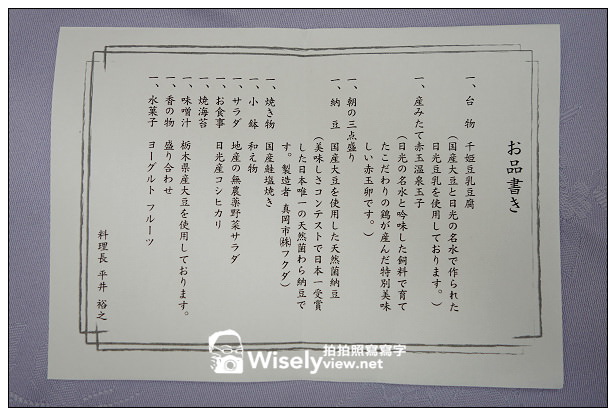 お品書き
一、台 物 千姫豆乳豆腐
（国産大豆と日光の名水で作られた
日光豆乳を使用しております。）
一、産みたて赤玉温泉玉子
（日光の名水と吟味した飼料で育て
たこだわりの鶏が産んだ特別美味
しい赤玉卵です。）
一、朝の三点盛り
一、納 豆 国産大豆を使用した天然菌納豆
（美味しさコンテストで日本一受賞
した日本唯一の天然菌わら納豆で
す。製造者 真岡市㈱フクダ）
一、焼き物 国産鮭塩焼き
一、小 鉢 和え物
一、サラダ 地産の無農薬野菜サラダ
一、お食事 日光産コシヒカリ
一、焼海苔
一、味噌汁 栃木県産大豆を使用しております。
一、香の物 盛り合わせ
一、水菓子 ヨーグルト フルーツ
料理長 平井 裕之
拍拍照寫寫字
Wisely
view.net